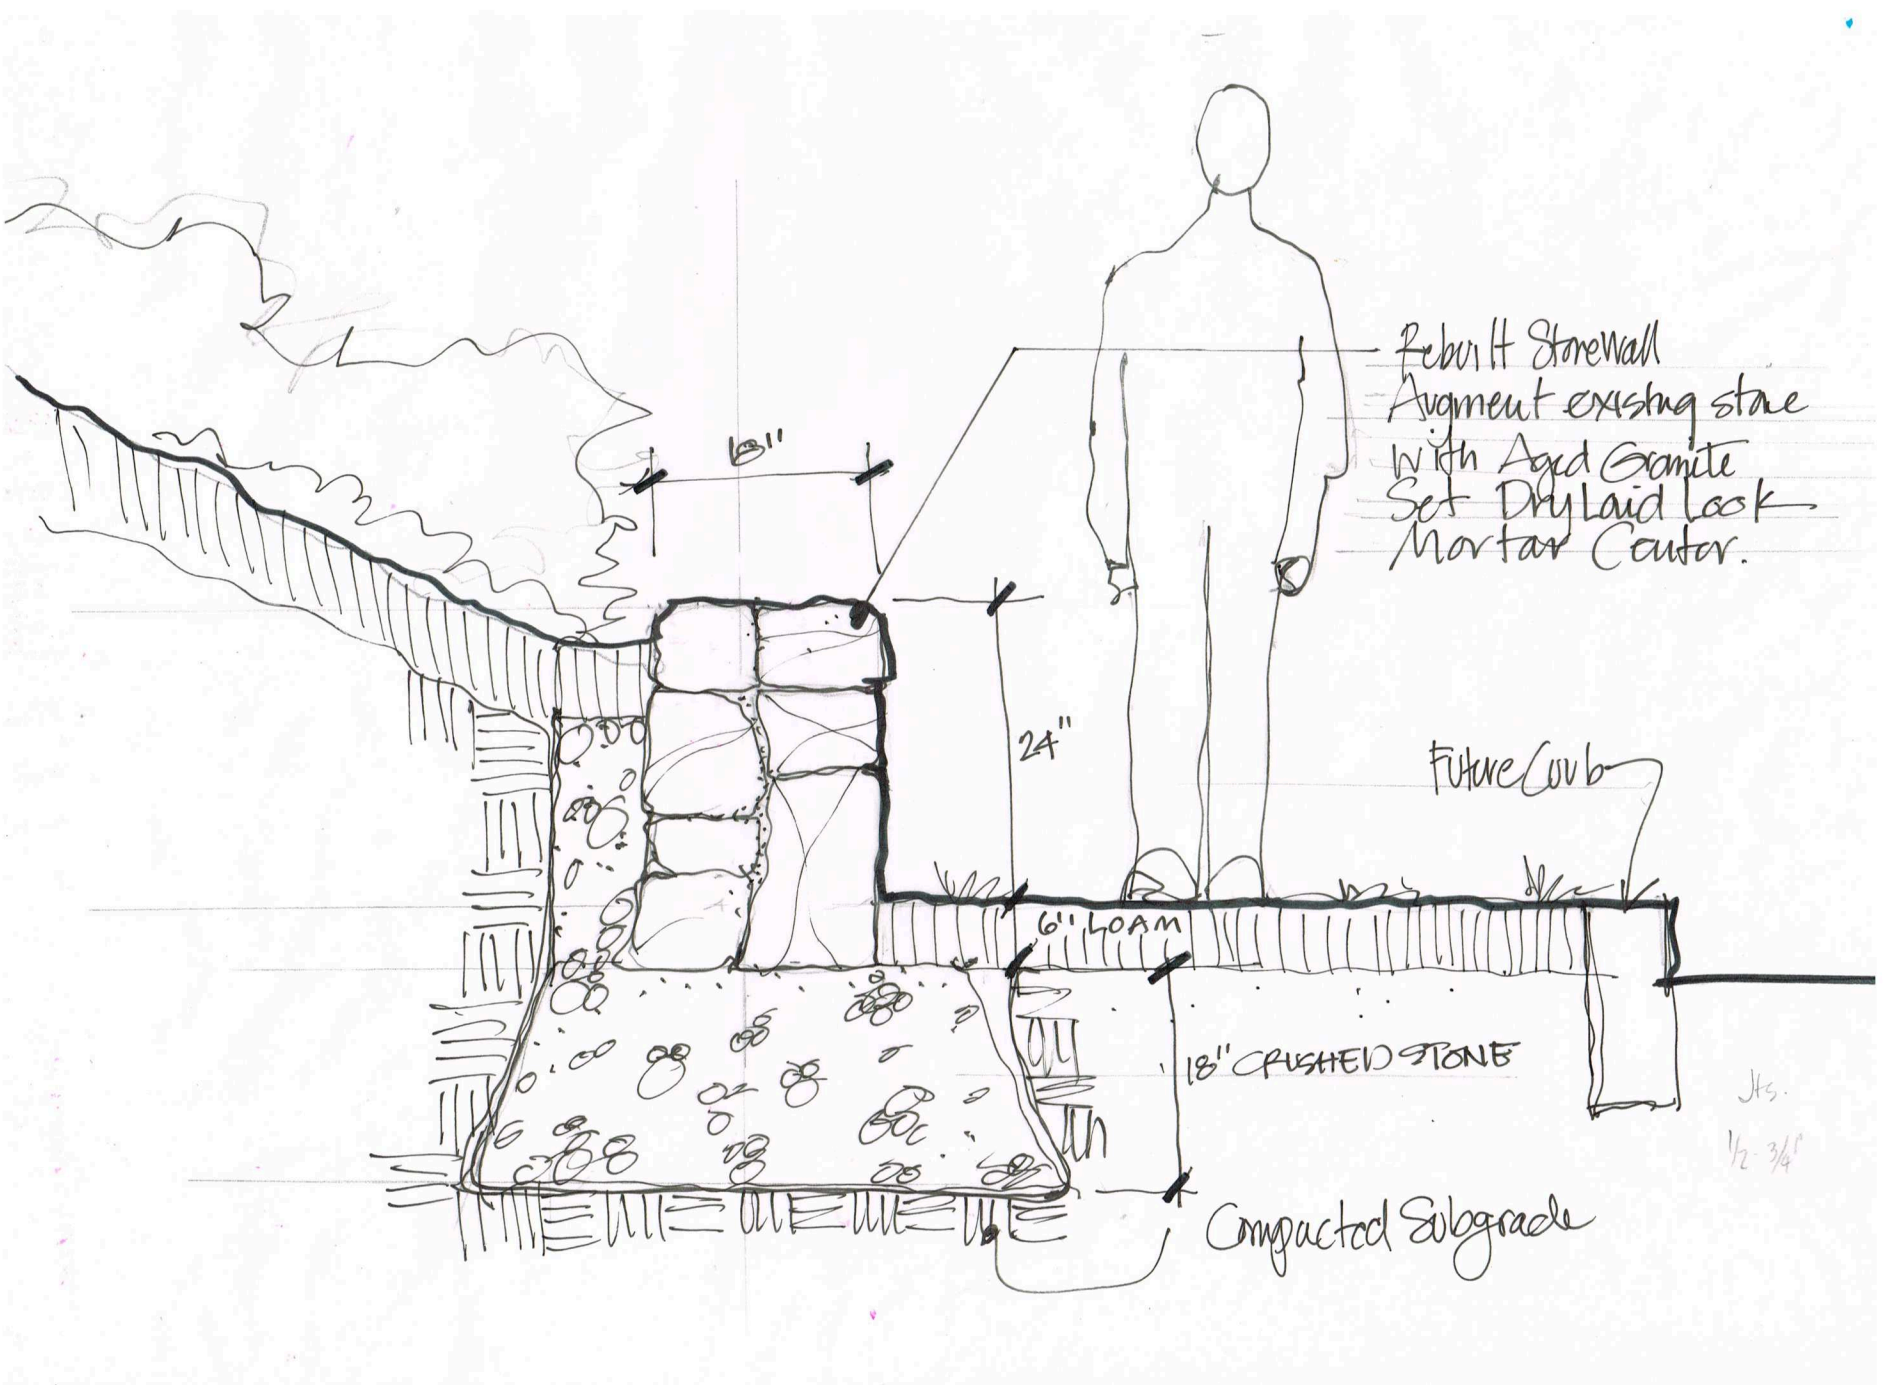 18"
Rebuilt Stonewall
Augment existing stone
with Aged Granite
Set Dry Laid Look
Mortar Center.
24"
Future Curb
6" LOAM
18" CRUSHED STONE
1/2 - 3/4"
Compacted Subgrade